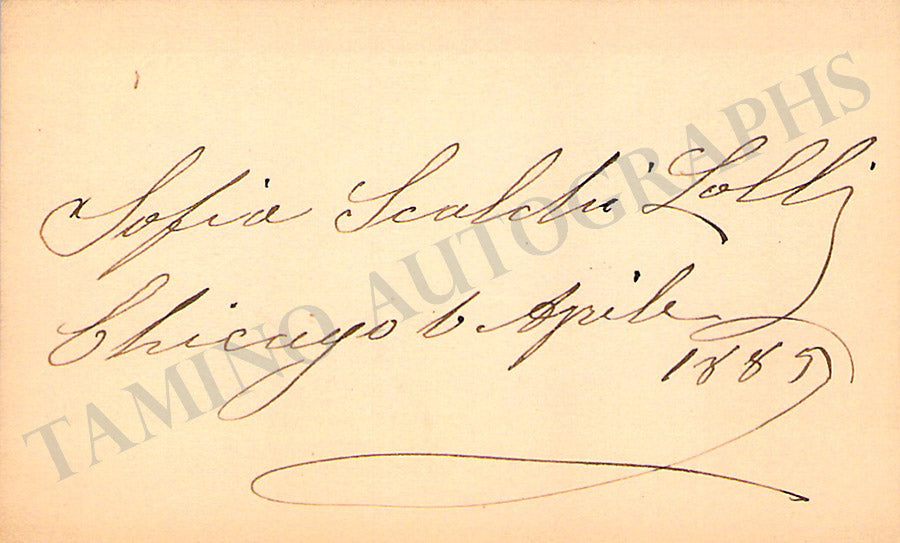 Sofia Scalchi Lolli
Chicago 6 Aprile
1885
TAMINO AUTOGRAPHS